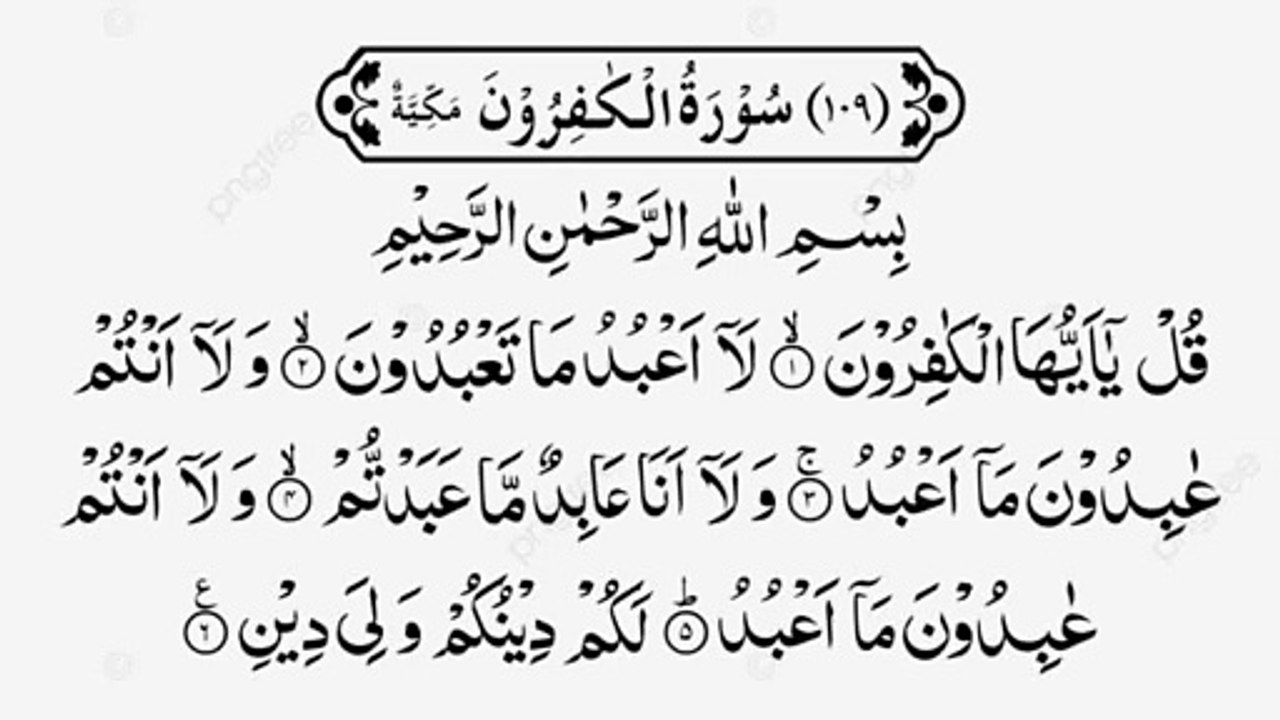 (١٠٩) سُوْرَةُ الْكٰفِرُوْنَ مَكِّيَّةٌ
بِسْمِ اللّٰهِ الرَّحْمٰنِ الرَّحِيْمِ
قُلْ يٰٓاَيُّهَا الْكٰفِرُوْنَ ۙ﴿١﴾ لَآ اَعْبُدُ مَا تَعْبُدُوْنَ ۙ﴿٢﴾ وَ لَآ اَنْتُمْ
عٰبِدُوْنَ مَآ اَعْبُدُ ۚ﴿٣﴾ وَ لَآ اَنَا عَابِدٌ مَّا عَبَدْتُّمْ ۙ﴿٤﴾ وَ لَآ اَنْتُمْ
عٰبِدُوْنَ مَآ اَعْبُدُ ؕ﴿٥﴾ لَكُمْ دِيْنُكُمْ وَ لِيَ دِيْنِ ﴿٦﴾ع
pngtree